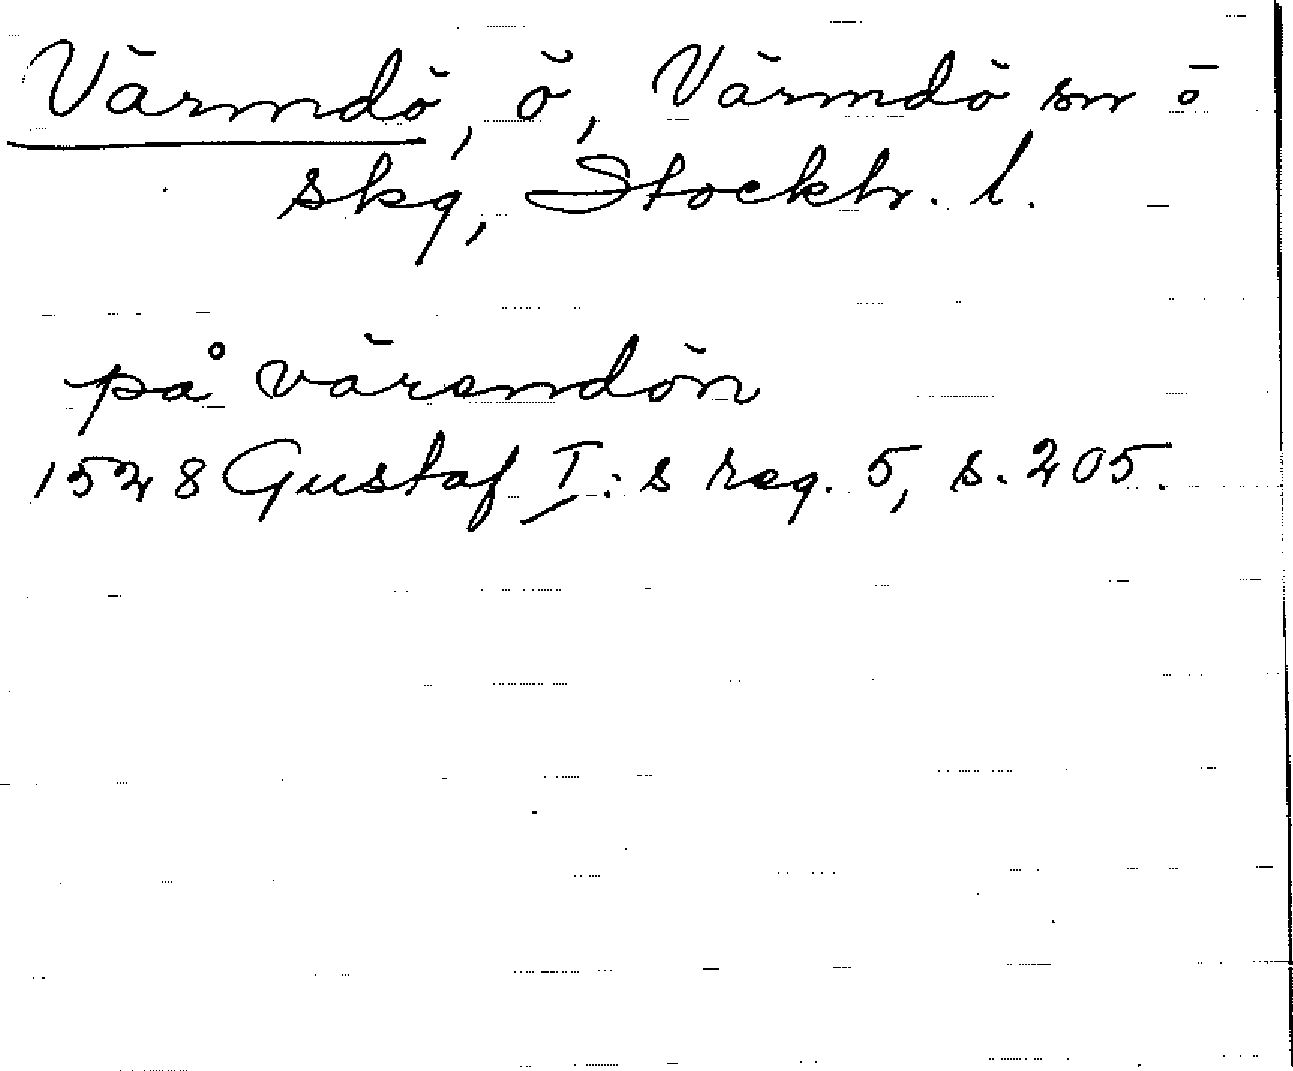 Värmdö, ö, Värmdö sn o
skg, Stockh. l.
på värendön
1528 Gustaf I:s reg. 5, s. 205.